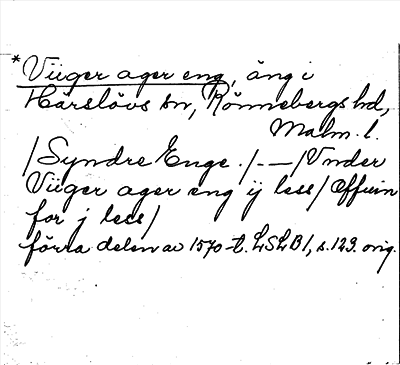 *Viiger ager eng, äng i
Härslövs sn, Rönnebergs hd,
Malm. l.
/Syndre Enge./.—/Vnder
Viiger ager eng ij less/ Offuen
for j less/
förra delen av 1570-t. LSLB 1, s. 123. orig.